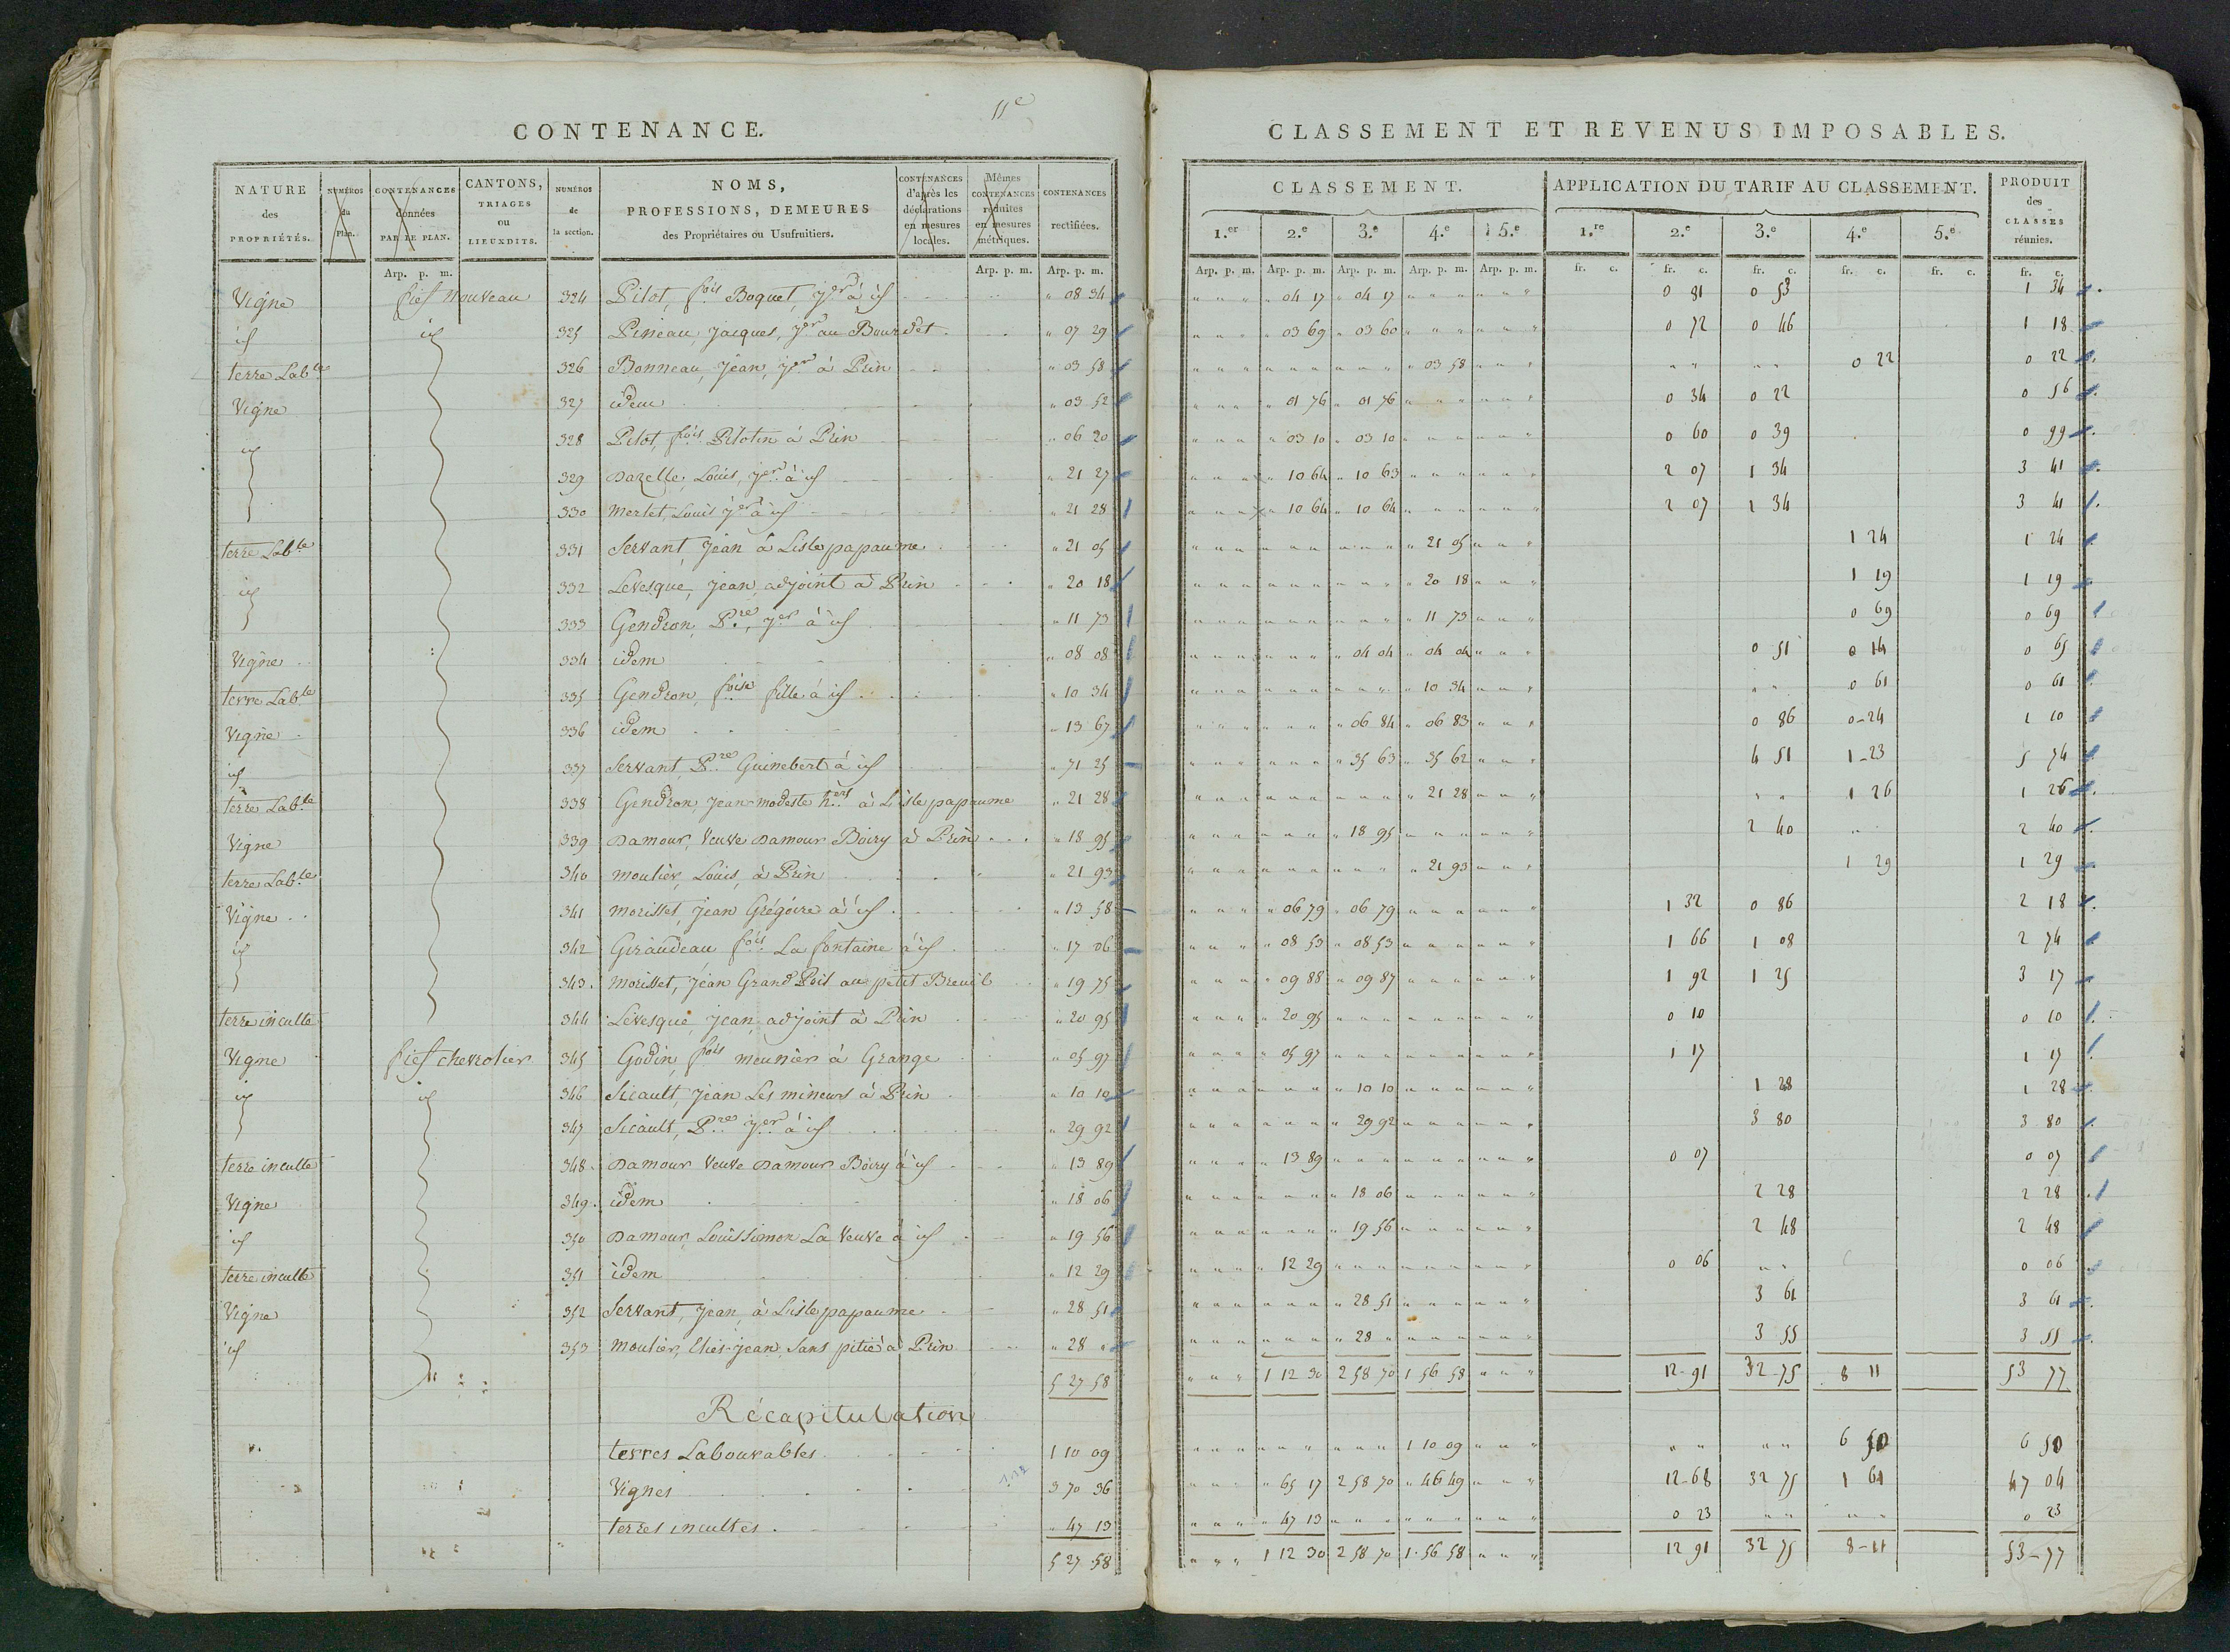 11e
CONTENANCE.
NATURE des PROPRIÉTÉS. NUMÉROS du Plan. CONTENANCES données PAR LE PLAN. CANTONS, TRIAGES ou LIEUXDITS. NUMÉROS de la section. NOMS, PROFESSIONS, DEMEURES des Propriétaires ou Usufruitiers. CONTENANCES d'après les déclarations en mesures locales. Mêmes CONTENANCES réduites en mesures métriques. CONTENANCES rectifiées.
Arp. p. m. Arp. p. m. Arp. p. m.
Vigne fief Nouveau 324 Pilot, fois Boquet, jer à id " 08 34
id id 325 Pineau, Jacques, jer au Bourdet " 07 29
terre Lable 326 Bonneau, Jean, jer à Prin " 03 58
Vigne 327 idem " 03 52
id 328 Pilot, fois Pilotin à Prin " 06 20
329 Dazelle, Louis, jer à id " 21 27
330 Merlet, Louis jer à id " 21 28
terre Lable 331 Servant, Jean à Lisle papaume " 21 05
id 332 Levesque, Jean, adjoint à Prin " 20 18
333 Gendron, Pre, jer à id " 11 73
Vigne 334 idem " 08 08
terre Lable 335 Gendron, foise fille à id " 10 34
Vigne 336 idem " 13 67
id 337 Servant, Pre Guinebert à id " 71 25
terre Lable 338 Gendron, Jean-modeste hers à Lisle papaume " 21 28
Vigne 339 Damour, Veuve Damour Boiry à Prin " 18 95
terre Lable 340 Moulier, Louis, à Prin " 21 93
Vigne 341 Morisset, Jean Grégoire à id " 13 58
id 342 Giraudeau fois La fontaine à id " 17 06
343 Morisset, Jean Grand Poil au petit Breuil " 19 75
terre inculte 344 Levesque, Jean, adjoint à Prin " 20 95
Vigne fief chevrolier 345 Godin, fois meunier à Grange " 05 97
id id 346 Sicault, Jean Les mineurs à Prin " 10 10
347 Sicault, Pre jer à id " 29 92
terre inculte 348 Damour Veuve Damour Boiry à id " 13 89
Vigne 349 idem " 18 06
id 350 Damour, Louis Simon La Veuve à id " 19 56
terre inculte 351 idem " 12 29
Vigne 352 Servant, Jean, à Lisle papaume " 28 51
id 353 Moulier, Elies-Jean, Sans pitié à Prin " 28 "
5 27 58
Récapitulation
terres Labourables 1 10 09
Vignes 3 70 36
terres incultes " 47 13
5 27 58
CLASSEMENT ET REVENUS IMPOSABLES.
CLASSEMENT. APPLICATION DU TARIF AU CLASSEMENT. PRODUIT des CLASSES réunies.
1.er 2.e 3.e 4.e 5.e 1.re 2.e 3.e 4.e 5.e
Arp. p. m. Arp. p. m. Arp. p. m. Arp. p. m. Arp. p. m. fr. c. fr. c. fr. c. fr. c. fr. c. fr. c.
" 04 17 " 04 17 0 81 0 53 1 34
" 03 69 " 03 60 0 72 0 46 1 18
" 03 58 0 22 0 22
" 01 76 " 01 76 0 34 0 22 0 56
" 03 10 " 03 10 0 60 0 39 0 99
" 10 64 " 10 63 2 07 1 34 3 41
" 10 64 " 10 64 2 07 1 34 3 41
" 21 05 1 24 1 24
" 20 18 1 19 1 19
" 11 73 0 69 0 69
" 04 04 " 04 04 0 51 0 14 0 65
" 10 34 0 61 0 61
" 06 84 " 06 83 0 86 0-24 1 10
" 35 63 " 35 62 4 51 1-23 5 74
" 21 28 1 26 1 26
" 18 95 2 40 2 40
" 21 93 1 29 1 29
" 06 79 " 06 79 1 32 0 86 2 18
" 08 53 " 08 53 1 66 1 08 2 74
" 09 88 " 09 87 1 92 1 25 3 17
" 20 95 0 10 0 10
" 05 97 1 17 1 17
" 10 10 1 28 1 28
" 29 92 3 80 3 80
" 13 89 0 07 0 07
" 18 06 2 28 2 28
" 19 56 2 48 2 48
" 12 29 0 06 0 06
" 28 51 3 61 3 61
" 28 " 3 55 3 55
" " " 1 12 30 2 58 70 1 56 58 " " " 12-91 32-75 8 11 53 77
1 10 09 6 50 6 50
" 65 17 2 58 70 " 46 49 12-68 32 75 1 61 47 04
" 47 13 0 23 0 23
" " " 1 12 30 2 58 70 1.56 58 " " " 12 91 32 75 8-11 53-77